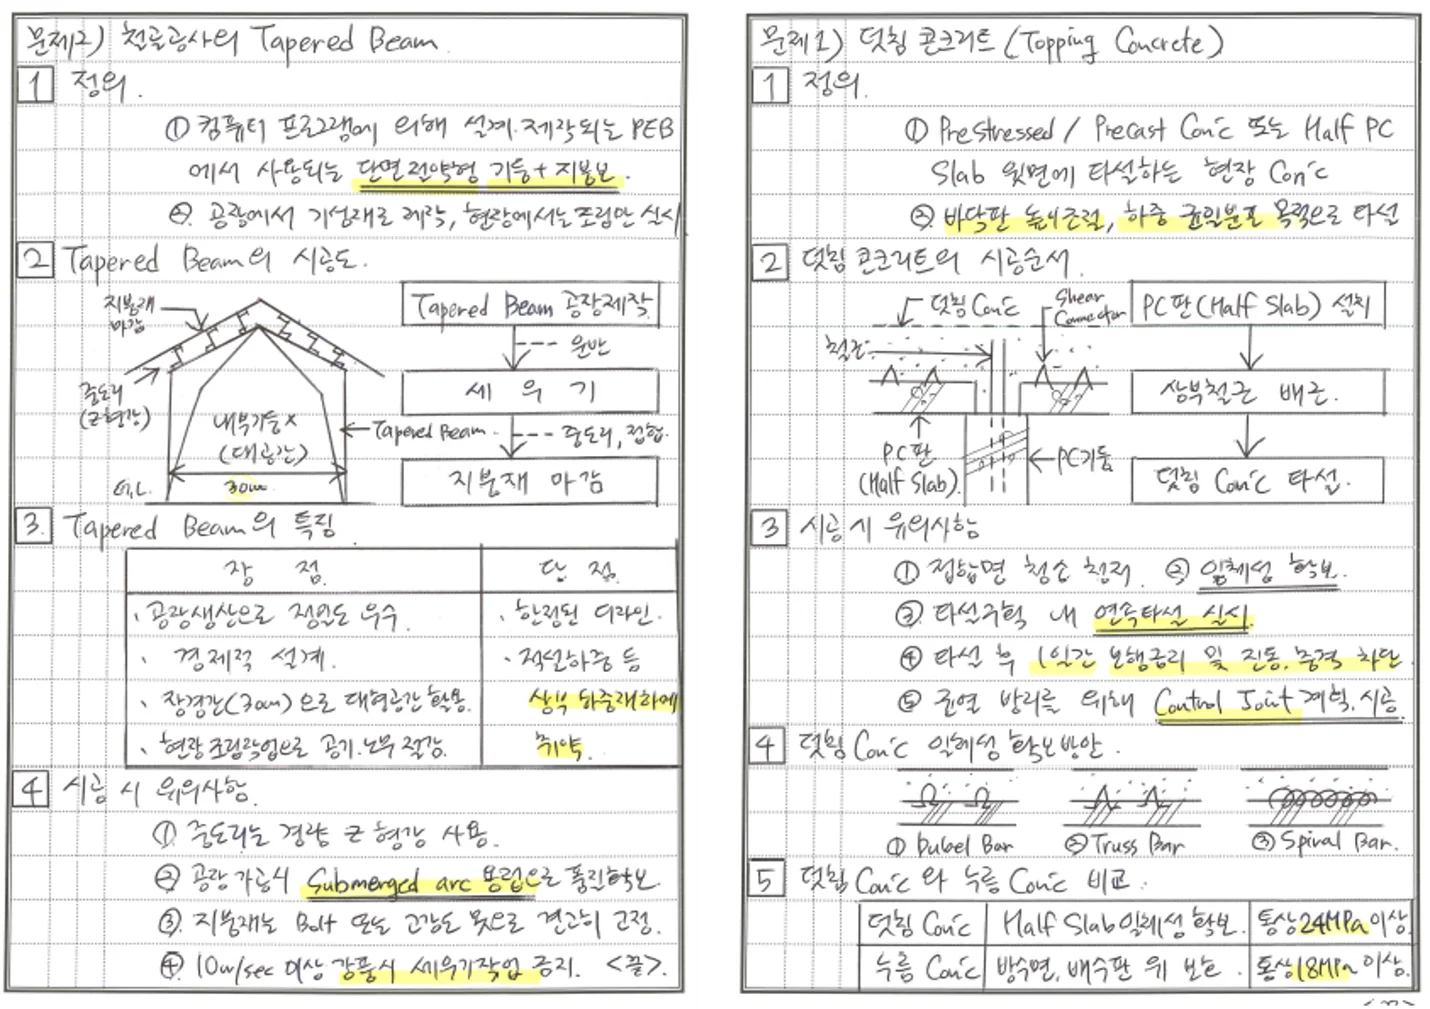 문제2) 철골공사의 Tapered Beam.
1 정의.
① 컴퓨터 프로그램에 의해 설계.제작되는 PEB
에서 사용되는 단면절약형 기둥+지붕보.
②. 공장에서 기성재로 제작, 현장에서는 조립만 실시
2 Tapered Beam의 시공도.
지붕재
마감
중도리
(ㄷ형강)
내부기둥×
(대공간)
30m
G.L.
Tapered Beam.
Tapered Beam 공장제작
운반
세 우 기
중도리, 접합.
지붕재 마감
3. Tapered Beam의 특징
장 점.
단 점.
· 공장생산으로 정밀도 우수.
· 한정된 디자인.
· 경제적 설계.
· 적설하중 등
· 장경간(30m)으로 대형공간 활용.
상부 하중재하에
· 현장조립작업으로 공기.노무 절감.
취약.
4 시공 시 유의사항.
① 중도리는 경량 ㄷ형강 사용.
② 공장가공시 Submerged arc 용접으로 품질확보.
③. 지붕재는 Bolt 또는 고강도 못으로 견고히 고정.
④. 10m/sec 이상 강풍시 세우기작업 금지. <끝>.
문제1) 덧침 콘크리트 (Topping Concrete)
1 정의.
① PreStressed / Precast Con'c 또는 Half PC
Slab 윗면에 타설하는 현장 Con'c
②. 바닥판 높이조절, 하중 균일분포 목적으로 타설
2 덧침 콘크리트의 시공순서.
덧침 Con'c
Shear
Connector
철근
PC판
(Half Slab).
PC기둥
PC판(Half Slab) 설치
상부철근 배근.
덧침 Con'c 타설.
3 시공 시 유의사항
① 접합면 청소 철저. ② 일체성 확보.
③. 타설구획 내 연속타설 실시.
④ 타설 후 1일간 보행금지 및 진동.충격 차단.
⑤ 균열 방지를 위해 Control Joint 계획.시공
4 덧침 Con'c 일체성 확보방안.
① Dubel Bar
② Truss Bar
③ Spiral Bar.
5 덧침 Con'c 와 누름 Con'c 비교.
덧침 Con'c
Half Slab일체성 확보.
통상24MPa이상.
누름 Con'c
방수면, 배수판 위 보호.
통상18MPa이상.